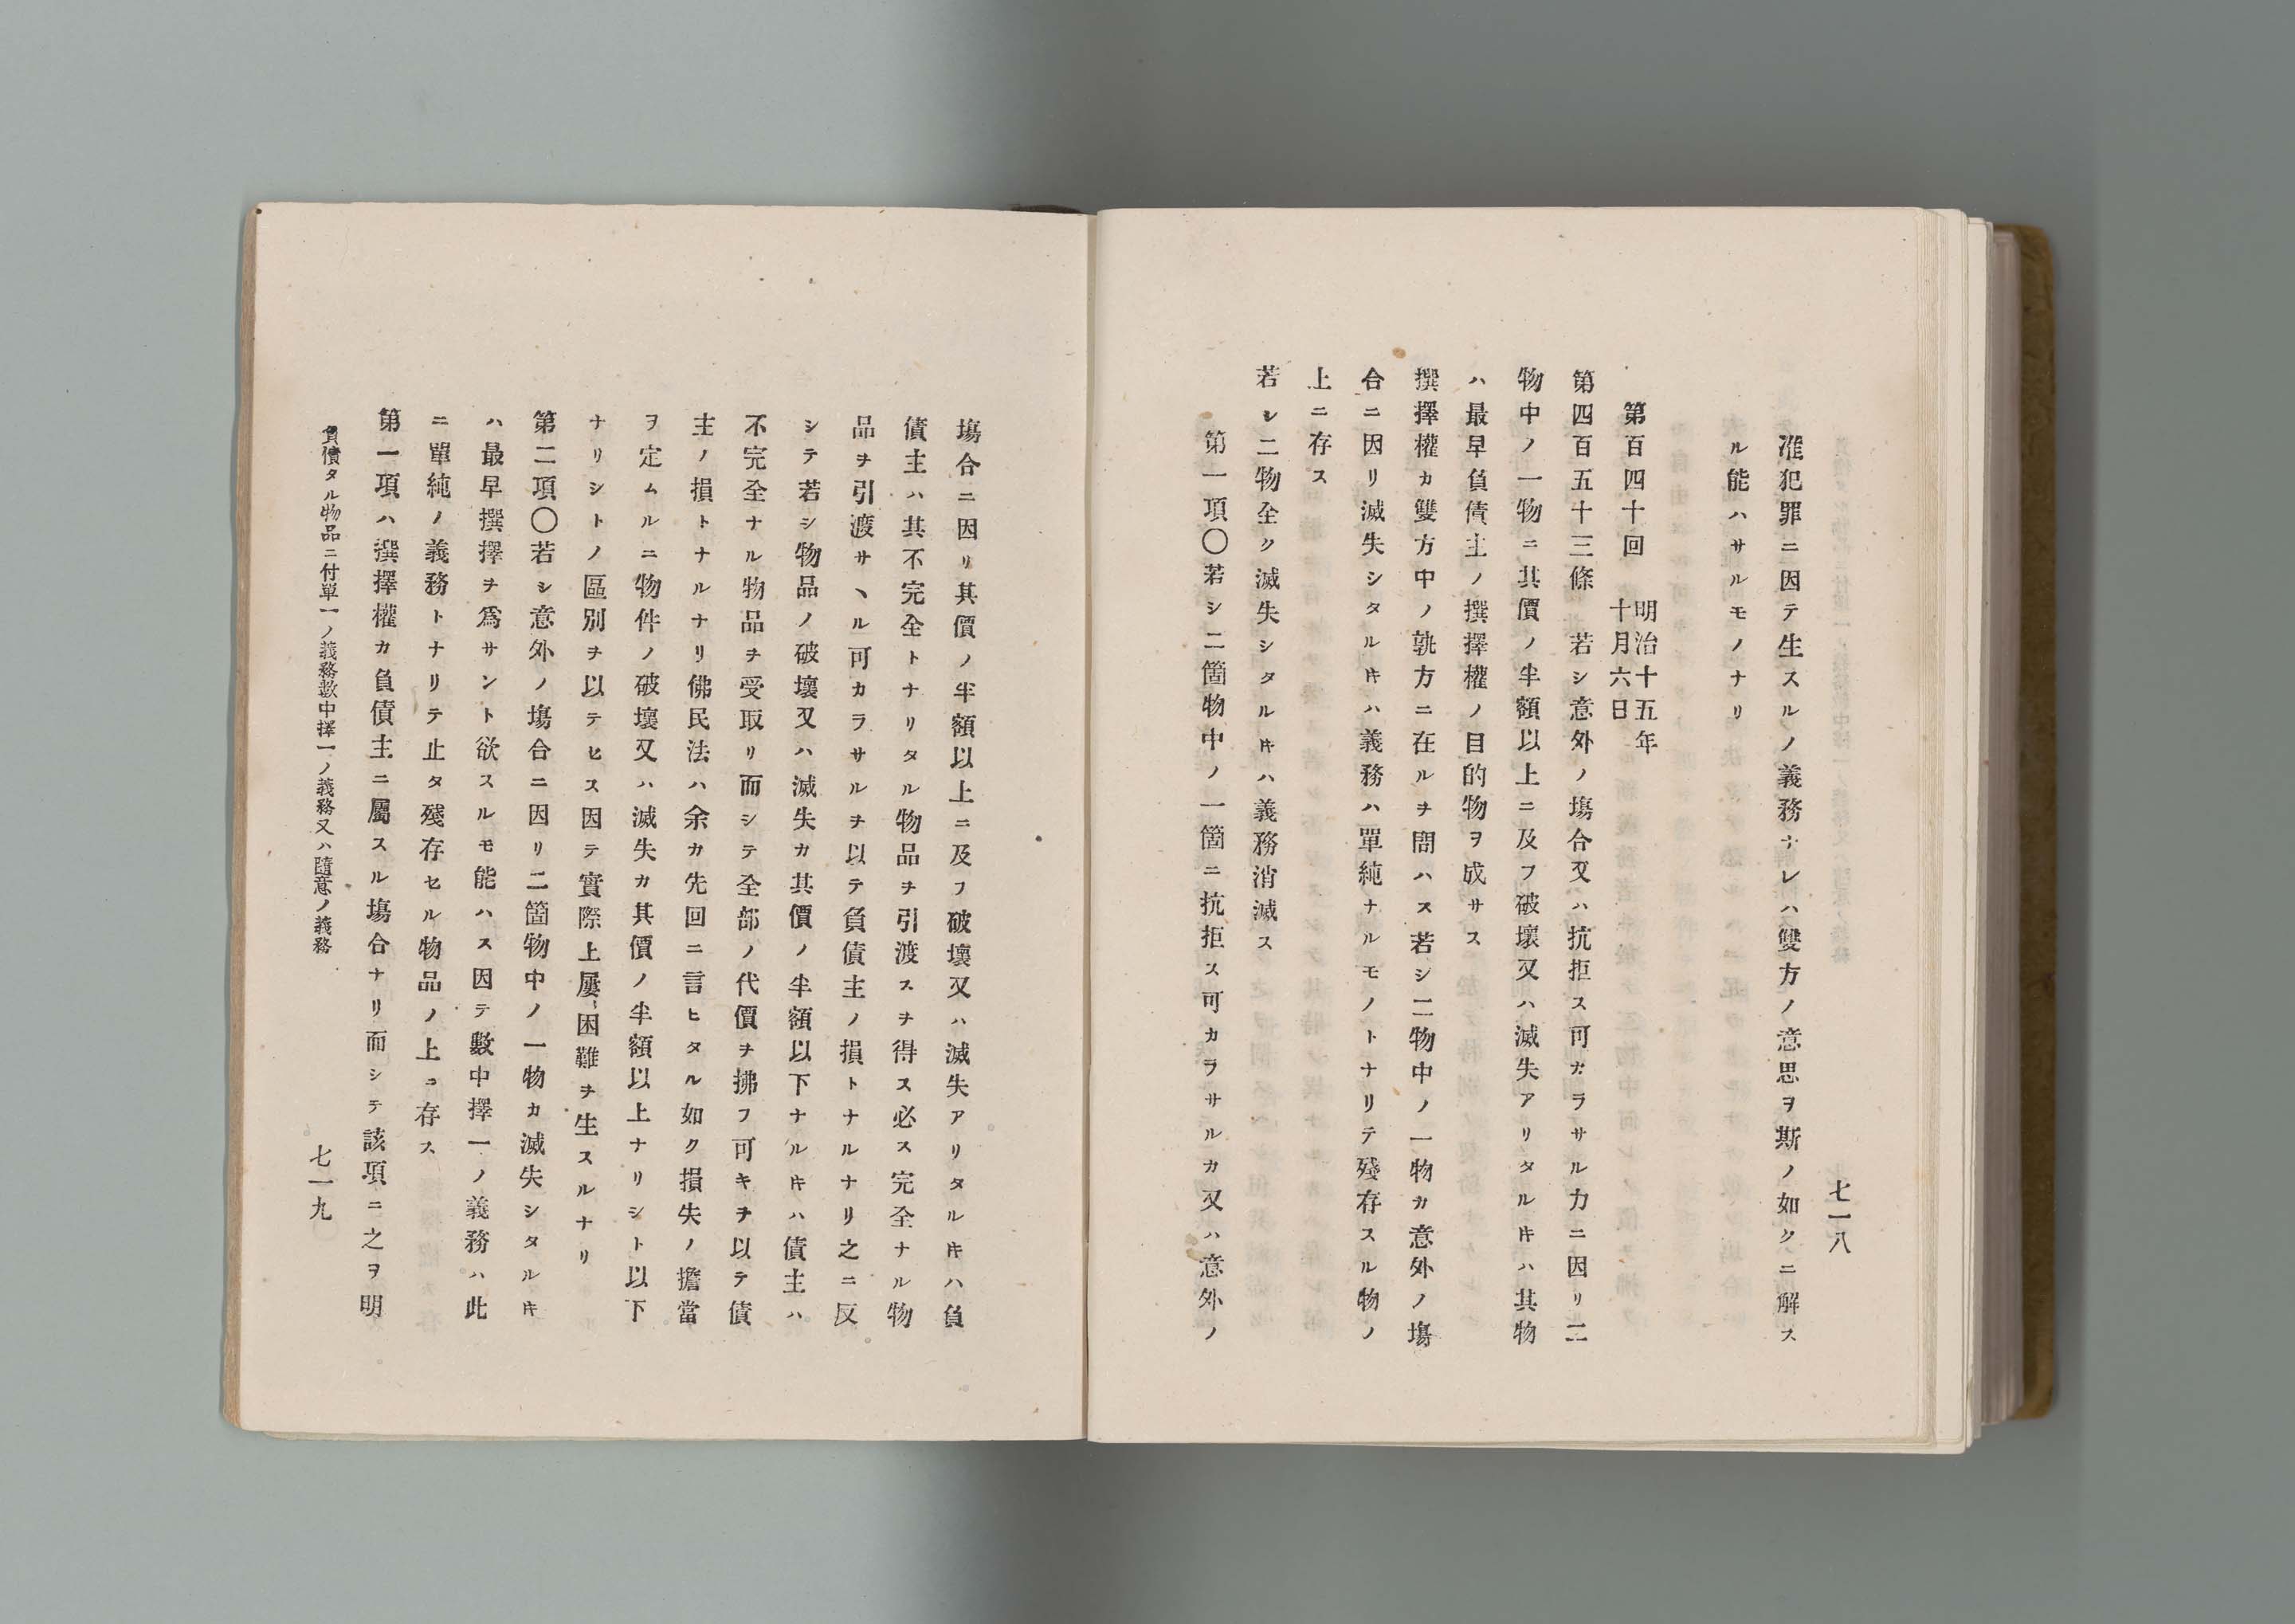 七一八
准犯罪ニ因テ生スルノ義務ナレハ雙方ノ意思ヲ斯ノ如クニ解ス
ル能ハサルモノナリ
第百四十回
明治十五年
十月六日
第四百五十三條 若シ意外ノ塲合又ハ抗拒ス可カラサル力ニ因リ二
物中ノ一物ニ其價ノ半額以上ニ及フ破壞又ハ滅失アリタルキハ其物
ハ最早負債主ノ撰擇權ノ目的物ヲ成サス
撰擇權カ雙方中ノ孰方ニ在ルヲ問ハス若シ二物中ノ一物カ意外ノ塲
合ニ因リ滅失シタルキハ義務ハ單純ナルモノトナリテ殘存スル物ノ
上ニ存ス
若シ二物全ク滅失シタルキハ義務消滅ス
第一項〇若シ二箇物中ノ一箇ニ抗拒ス可カラサルカ又ハ意外ノ
塲合ニ因リ其價ノ半額以上ニ及フ破壞又ハ滅失アリタルキハ負
債主ハ其不完全トナリタル物品ヲ引渡スヲ得ス必ス完全ナル物
品ヲ引渡サヽル可カラサルヲ以テ負債主ノ損トナルナリ之ニ反
シテ若シ物品ノ破壞又ハ滅失カ其價ノ半額以下ナルキハ債主ハ
不完全ナル物品ヲ受取リ而シテ全部ノ代價ヲ拂フ可キヲ以テ債
主ノ損トナルナリ佛民法ハ余カ先回ニ言ヒタル如ク損失ノ擔當
ヲ定ムルニ物件ノ破壞又ハ滅失カ其價ノ半額以上ナリシト以下
ナリシトノ區別ヲ以テセス因テ實際上屢〻困難ヲ生スルナリ
第二項〇若シ意外ノ塲合ニ因リ二箇物中ノ一物カ滅失シタルキ
ハ最早撰擇ヲ爲サント欲スルモ能ハス因テ數中擇一ノ義務ハ此
ニ單純ノ義務トナリテ止タ殘存セル物品ノ上ニ存ス
第一項ハ撰擇權カ負債主ニ屬スル塲合ナリ而シテ該項ニ之ヲ明
負債タル物品ニ付單一ノ義務數中擇一ノ義務又ハ隨意ノ義務
七一九